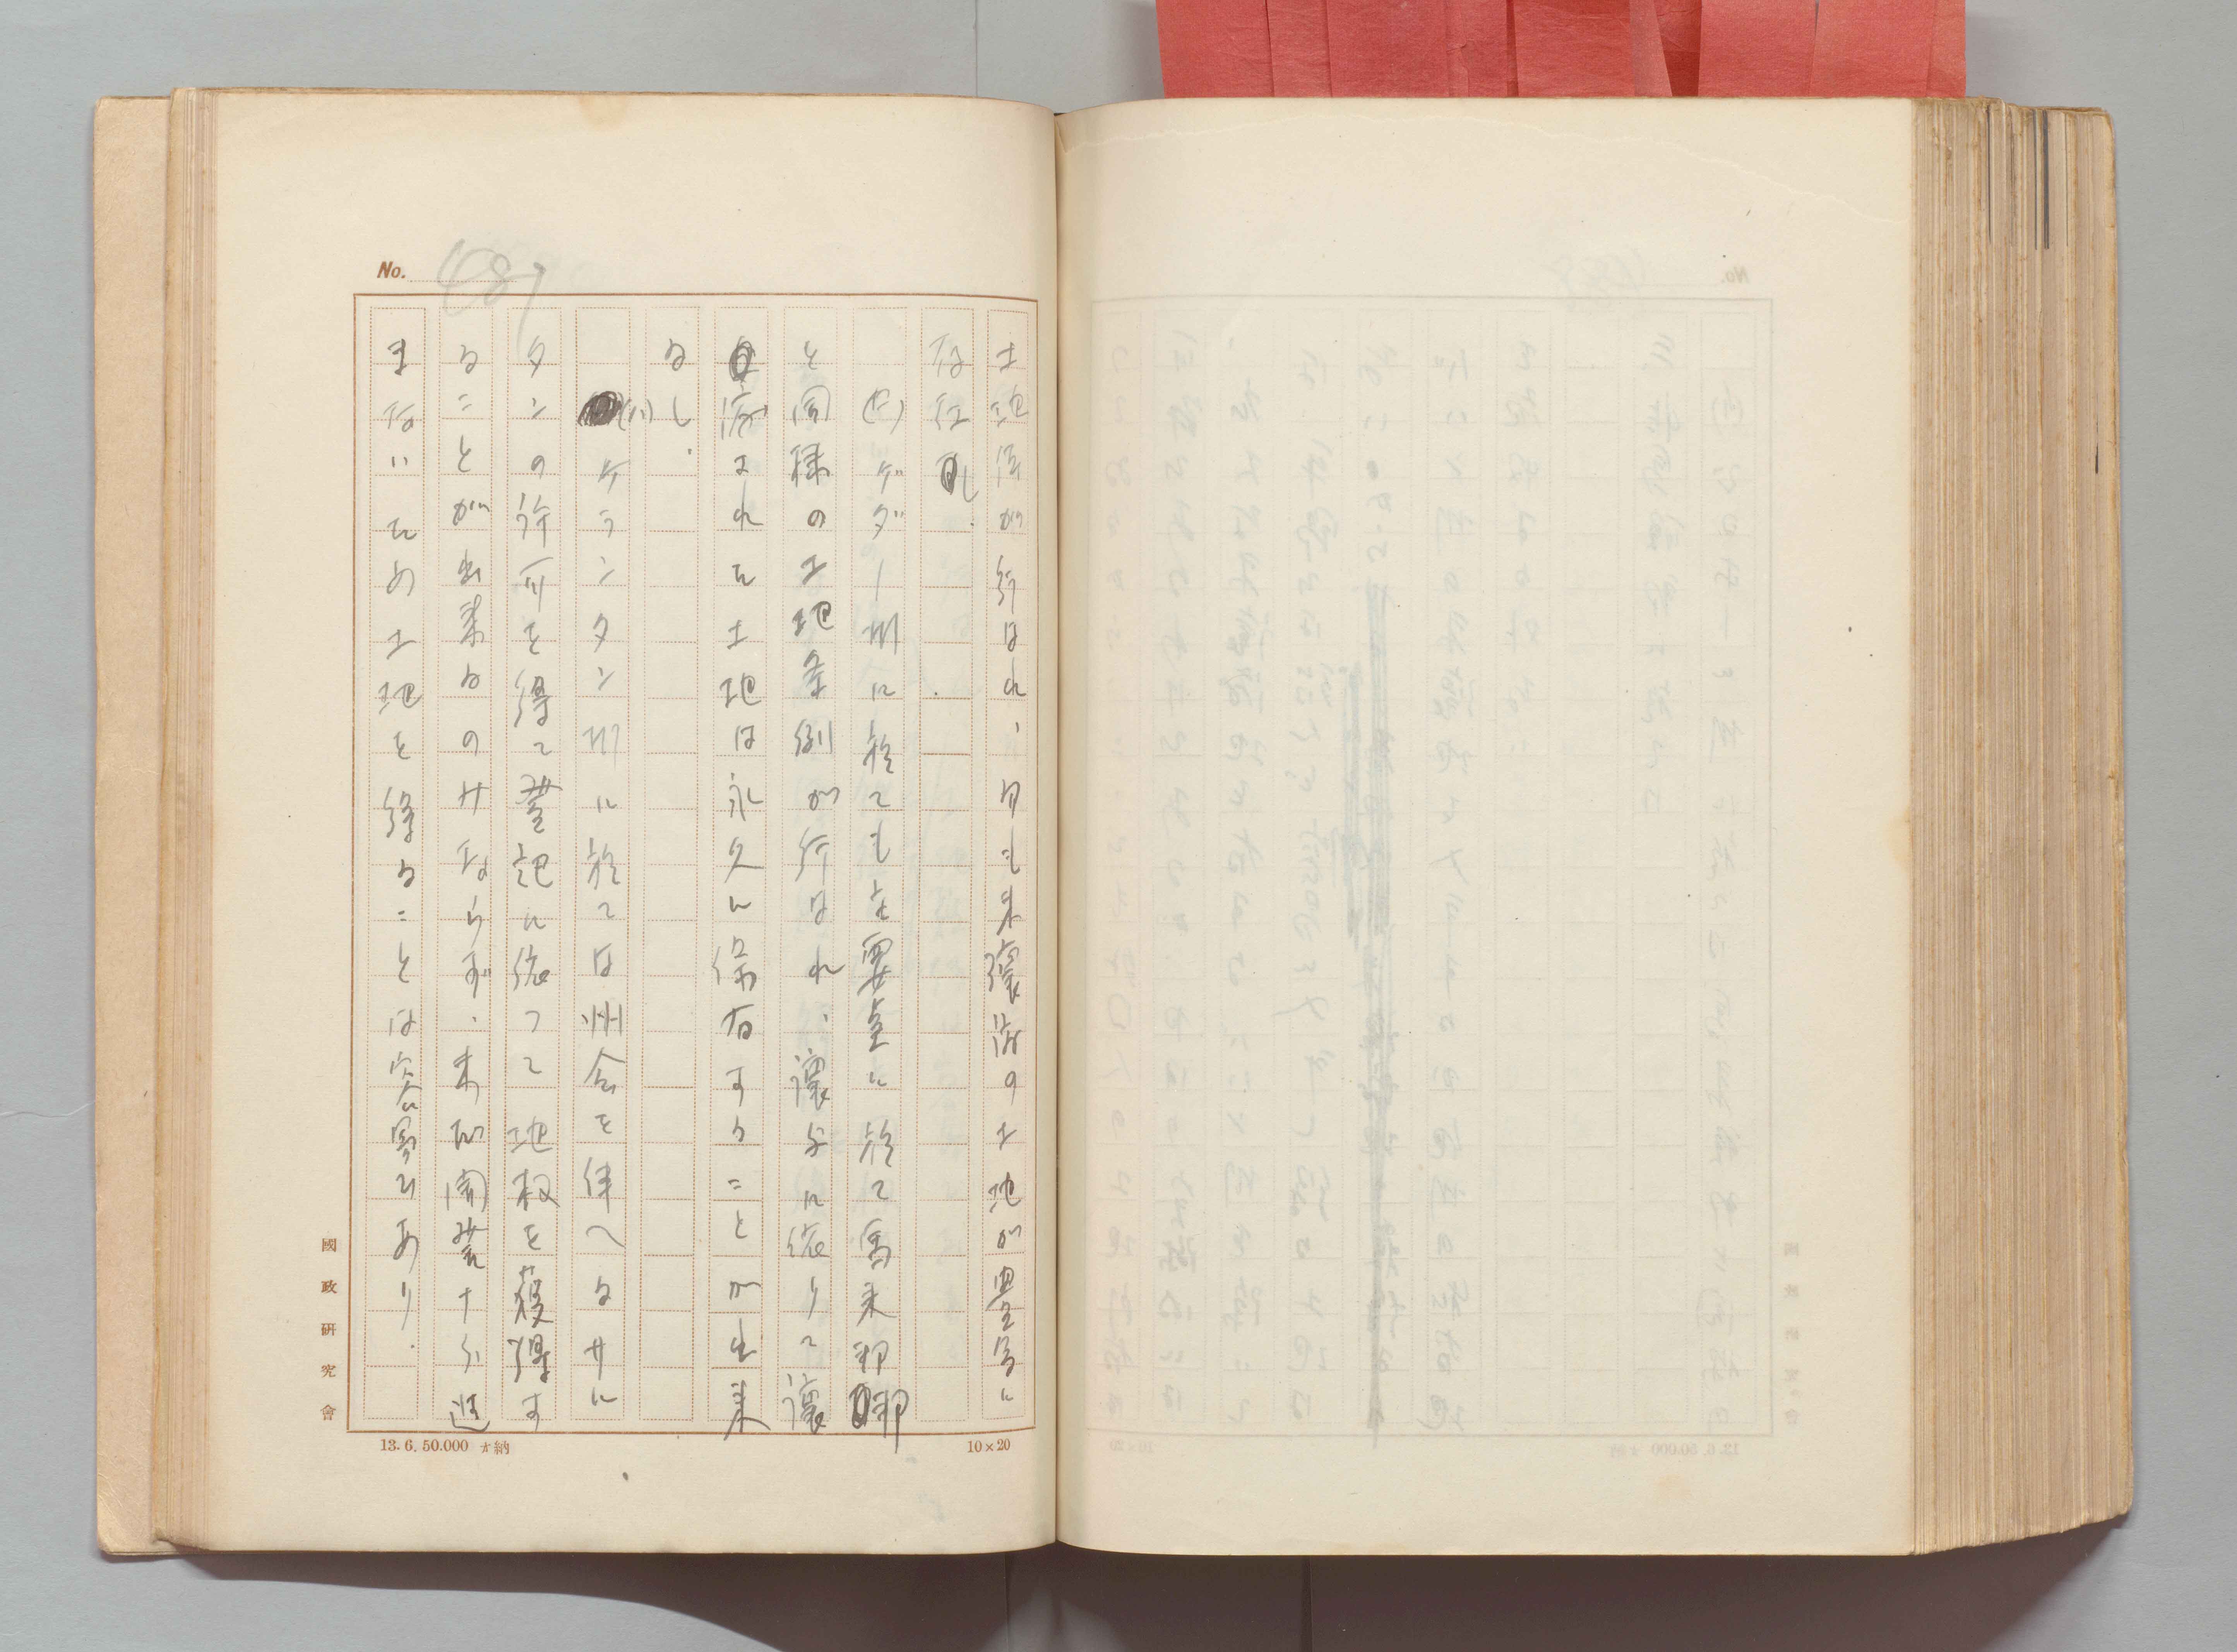 No. 487
土地法が行はれ、尚も未讓渡の土地が豊富に
存在し.
(ロ) ケダー州に於ても主要点に於て馬来聯邦
と同様の土地条例が行はれ、讓与に依りて讓
渡された土地は永久に保有することが出来
るし.
(ハ) ケランタン州に於ては州会を伴へるサルタ
タンの許可を得て登記に依つて地权を獲得す
ることが出来るのみならず、未だ開発十分進
まないため土地を得ることは容易であり.
國政研究會
13. 6. 50.000 才納
10×20